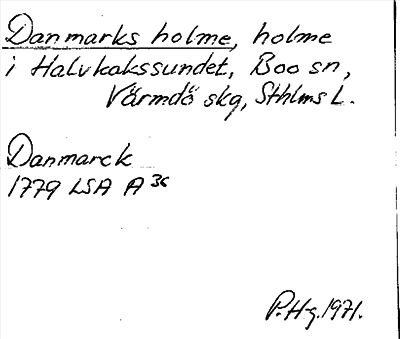 Danmarks holme, holme
i Halvkakssundet, Boo sn,
Värmdö skg, Sthlms L.
Danmarck
1779 LSA A 36
P.Hg. 1971.